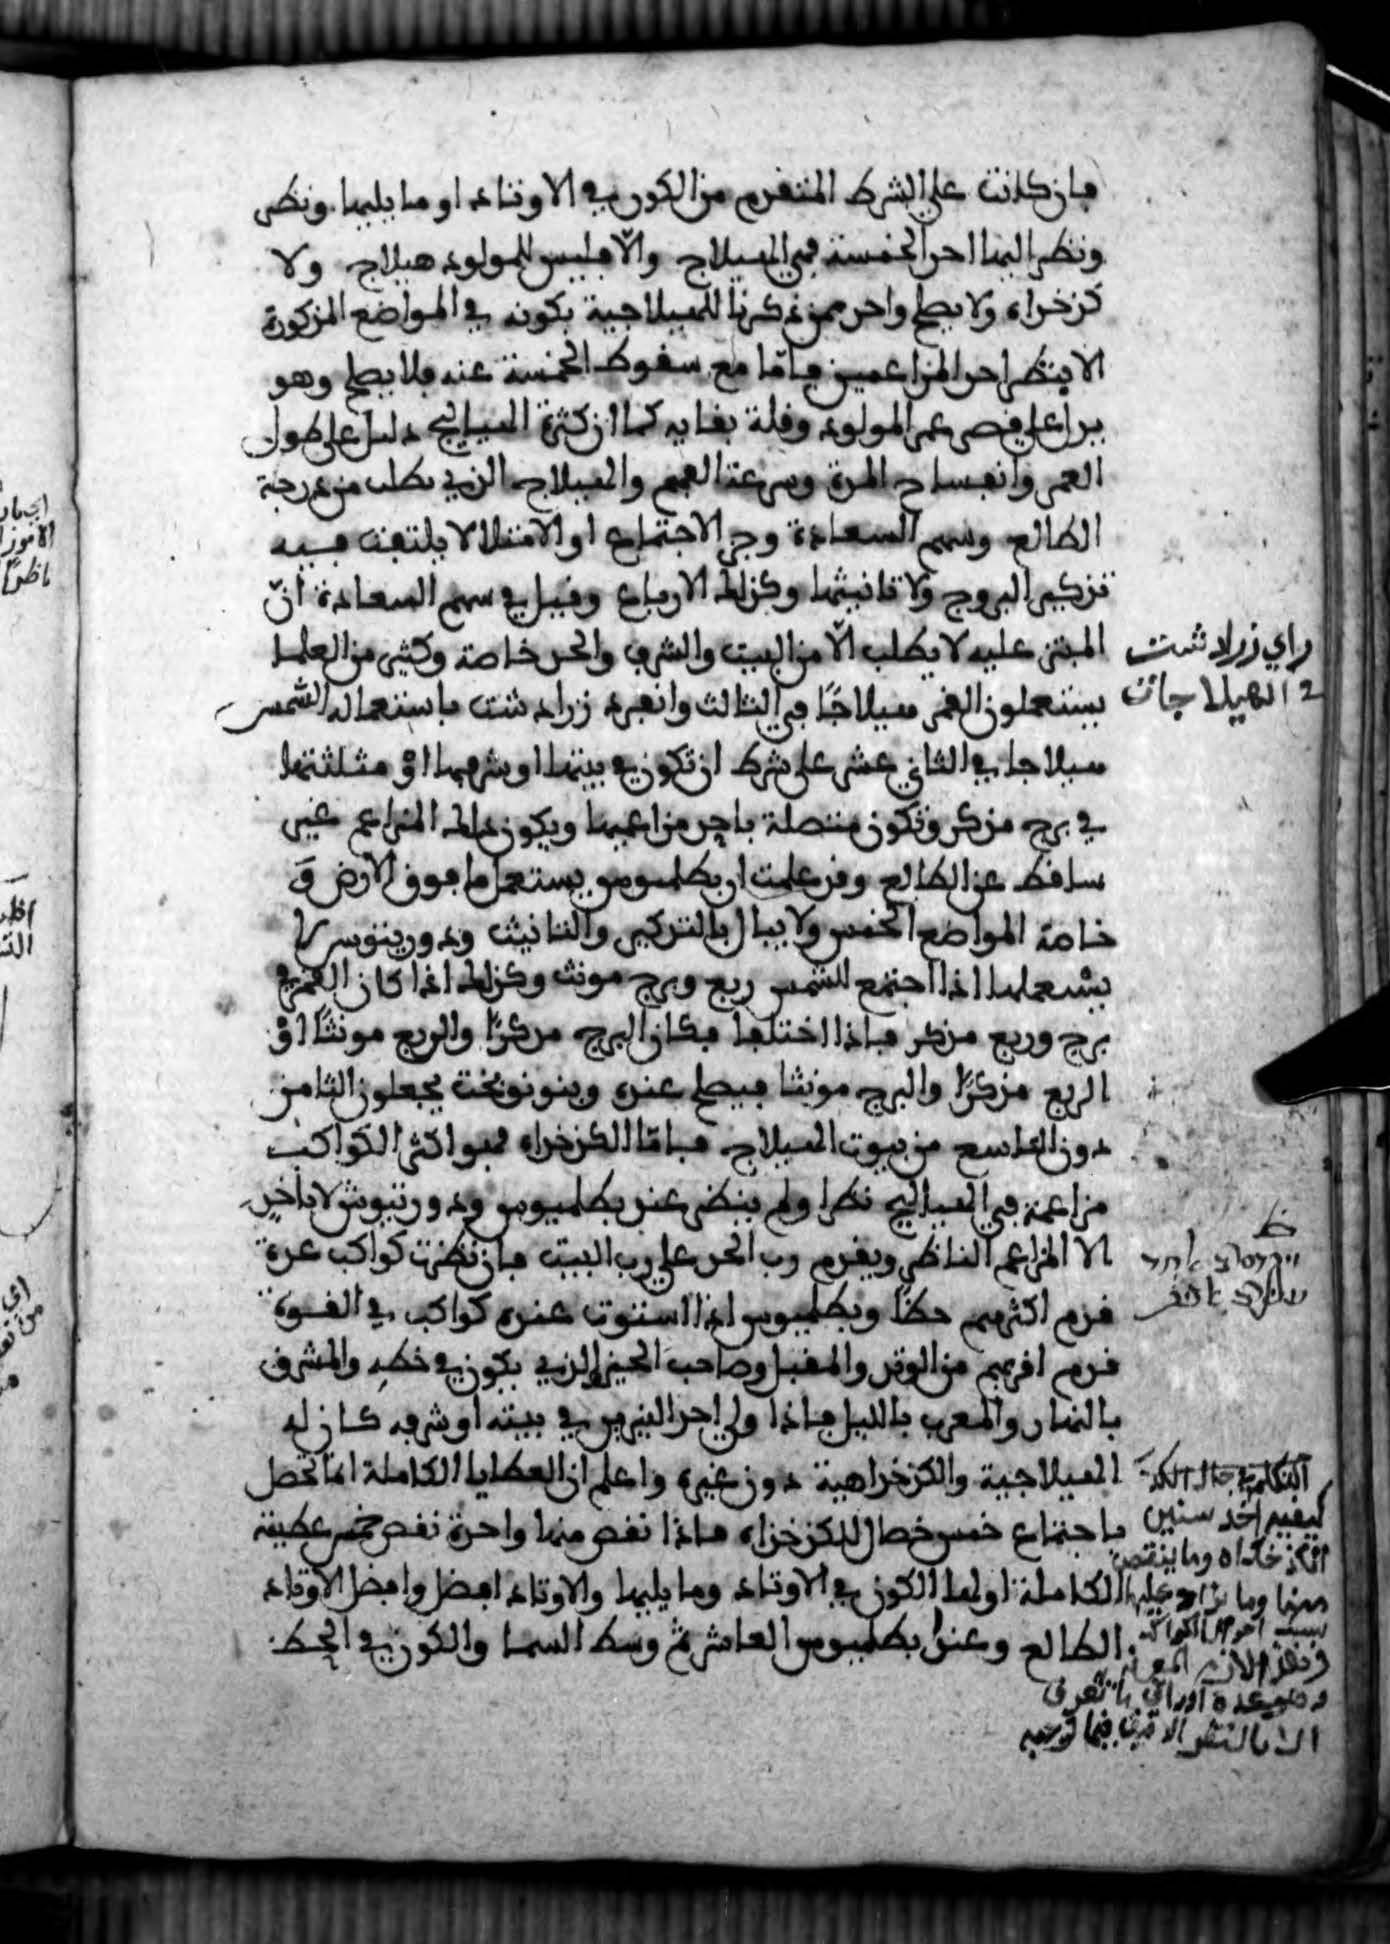 فان كانت على الشرط المتقدم من الكون في الاوتاد او ما يليها ونظر
ونظر اليها احد الخمسة فهي الهيلاج والّا فليس للمولود هيلاج ولا
كدخداه ولا يصلح واحد ممن ذكرنا للهيلاجية بكونه في المواضع المذكورة
الا بنظر احد المزاعمين فامّا مع سقوط الخمسة عنه فلا يصلح وهو
يدل على قصر عمر المولود وقلة بقايه كما ان كثرة الهياليج دليل على طول
العمر وانفساح المدة وسرعة الفهم والهيلاج الذي يطلب من درجة
الطالع وسهم السعادة وجزء الاجتماع او الامتلا لا يلتفت فيه
تذكير البروج ولا تانيثها وكذلك الارباع وقيل في سهم السعادة انّ
المبتز عليه لا يطلب الّا من البيت والشرف والحد خاصة وكثير من العلما
يستعملون القمر هيلاجًا في الثالث وانفرد زرادشت باستعماله الشمس
هيلاجا في الثاني عشر على شرط ان تكون في بيتها او شرفها اوْ مثلثتها
في برج مذكر وتكون متصلة باحد مزاعميها ويكون ذلك المزاعم غير
ساقط عن الطالع وقد علمت ان بطلميوس يستعمل ما فوق الارض وَ
خاصة المواضع الخمس ولا يبال بالتذكير والتانيث ودورينوس لا
يستعملها اذا اجتمع للشمس ربع وبرج مونث وكذلك اذا كان القمر في
برج وربع مذكر فاذا اختلفا فكان البرج مذكرًا والربع مونثًا اوْ
الربع مذكرًا والبرج مونثا فيصلح عنده وبنو نوبخت يجعلون الثامن
دون التاسع من بيوت الهيلاج فامّا الكدخداه فهو اكثر الكواكب
مزاعمة في الهياليج نظرا ولم ينظر عند بطلميوس ودورتيوش لا ياخذ
الا المزاعم الناظر ويقدم رب الحد على رب البيت فان نظرت كواكب عدة
قدم اكثرهم حظًا وبطلميوس اذا استوت عنده كواكب في القوة
قدم اقربهم من الوتد والمقبل وصاحب الحيز الذي يكون في حظه والمشرق
بالنهار والمغرب بالليل فاذا ولي احد النيرين في بيته او شرفه كان له
الهيلاجية والكدخداهية دون غيره واعلم ان العطايا الكاملة انما تحصل
باجتماع خمس خصال للكدخداه فاذا نقص منها واحدة نقص خمس عطيته
الكاملة اولها الكون في الاوتاد وما يليها والاوتاد افضل وافضل الاوتاد
الطالع وعند بطلميوس العاشر ثم وسط السما والكون في الحظ
راي زرادشت
في الهيلاجات
ظ
التكلم في حال الكد
كيفية اخذ سنين
الكدخداه وما ينقص
منها وما يزاد عليها